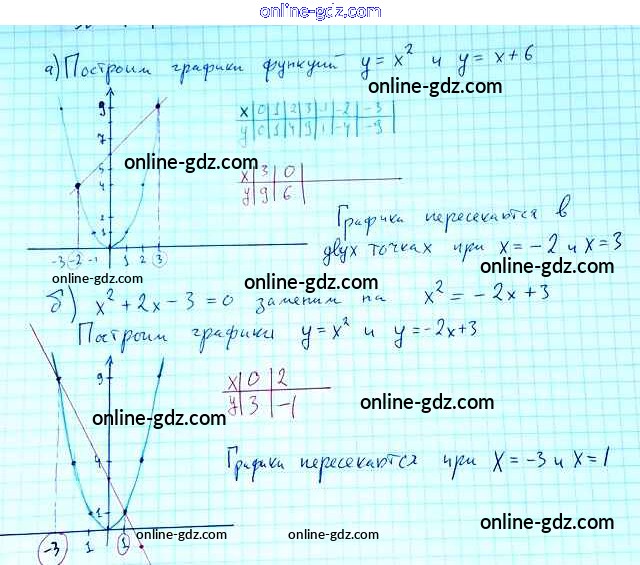 online-gdz.com
а) Построим графики функций y = x² и y = x+6
online-gdz.com
9
7
5
4
2
1
-3 -2 -1 1 2 3
x 0 1 2 3 -1 -2 -3
y 0 1 4 9 1 -4 -9
online-gdz.com
x 3 0
y 9 6
Графики пересекаются в
двух точках при x = -2 и x = 3
online-gdz.com
online-gdz.com
online-gdz.com
б) x² + 2x - 3 = 0 заменим на x² = -2x + 3
Построим графики y = x² и y = -2x+3
9
4
1
-3 1 1
x 0 2
y 3 -1
online-gdz.com
online-gdz.com
Графики пересекаются при x = -3 и x = 1
online-gdz.com
online-gdz.com
online-gdz.com